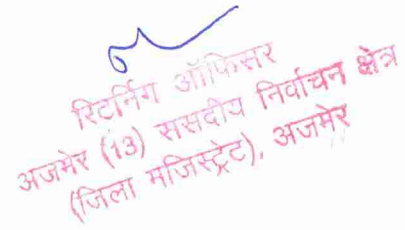 रिटर्निंग ऑफिसर
अजमेर (13) ससदीय निर्वाचन क्षेत्र
(जिला मजिस्ट्रेट), अजमेर